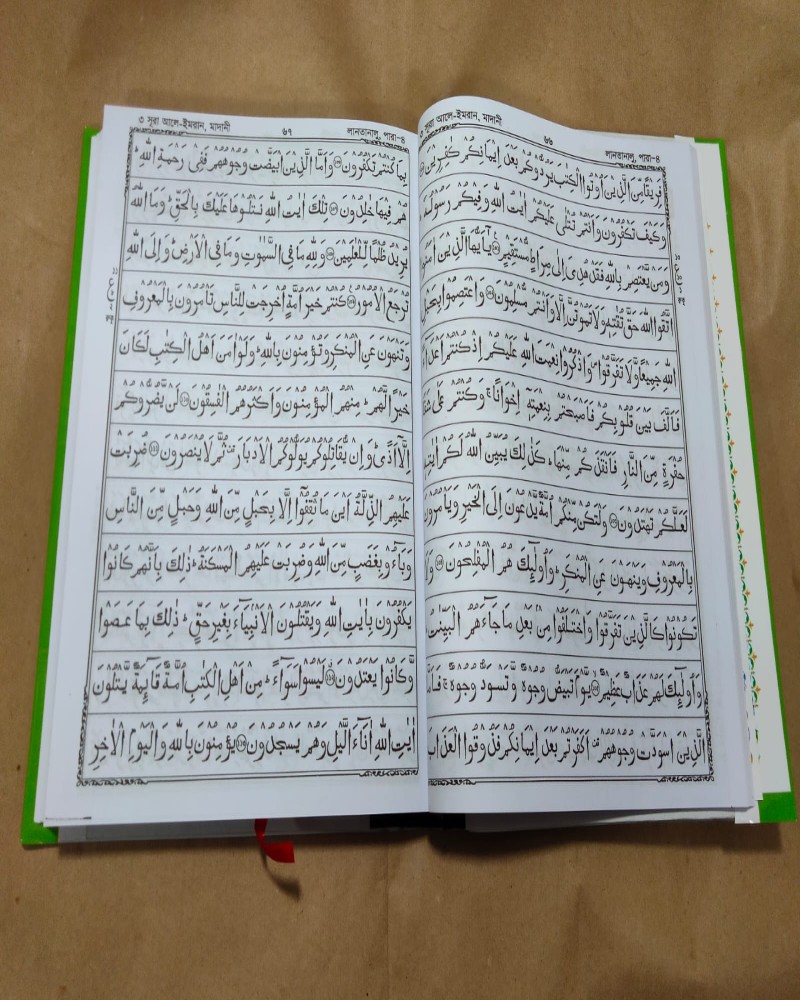 ৩ সূরা আলে-ইমরান, মাদানী ৬৬ লানতানালু, পারা-৪
فَرِيْقًا مِّنَ الَّذِيْنَ اُوْتُوا الْكِتٰبَ يَرُدُّوْكُمْ بَعْدَ اِيْمَانِكُمْ كٰفِرِيْنَ
وَكَيْفَ تَكْفُرُوْنَ وَاَنْتُمْ تُتْلٰى عَلَيْكُمْ اٰيٰتُ اللّٰهِ وَفِيْكُمْ رَسُوْلُهٗ
وَمَنْ يَّعْتَصِمْ بِاللّٰهِ فَقَدْ هُدِىَ اِلٰى صِرَاطٍ مُّسْتَقِيْمٍ يٰۤاَيُّهَا الَّذِيْنَ اٰمَنُوا
اتَّقُوا اللّٰهَ حَقَّ تُقٰتِهٖ وَلَا تَمُوْتُنَّ اِلَّا وَاَنْتُمْ مُّسْلِمُوْنَ وَاعْتَصِمُوْا بِحَبْلِ
اللّٰهِ جَمِيْعًا وَّلَا تَفَرَّقُوْا وَاذْكُرُوْا نِعْمَتَ اللّٰهِ عَلَيْكُمْ اِذْ كُنْتُمْ اَعْدَآءً
فَاَلَّفَ بَيْنَ قُلُوْبِكُمْ فَاَصْبَحْتُمْ بِنِعْمَتِهٖۤ اِخْوَانًا ۚ وَكُنْتُمْ عَلٰى شَفَا
حُفْرَةٍ مِّنَ النَّارِ فَاَنْقَذَكُمْ مِّنْهَا ؕ كَذٰلِكَ يُبَيِّنُ اللّٰهُ لَكُمْ اٰيٰتِهٖ
لَعَلَّكُمْ تَهْتَدُوْنَ وَلْتَكُنْ مِّنْكُمْ اُمَّةٌ يَّدْعُوْنَ اِلَى الْخَيْرِ وَيَاْمُرُوْنَ
بِالْمَعْرُوْفِ وَيَنْهَوْنَ عَنِ الْمُنْكَرِ ؕ وَاُولٰٓئِكَ هُمُ الْمُفْلِحُوْنَ
تَكُوْنُوْا كَالَّذِيْنَ تَفَرَّقُوْا وَاخْتَلَفُوْا مِنْۢ بَعْدِ مَا جَآءَهُمُ الْبَيِّنٰتُ
وَاُولٰٓئِكَ لَهُمْ عَذَابٌ عَظِيْمٌ يَّوْمَ تَبْيَضُّ وُجُوْهٌ وَّتَسْوَدُّ وُجُوْهٌ ۚ
الَّذِيْنَ اسْوَدَّتْ وُجُوْهُهُمْ اَكَفَرْتُمْ بَعْدَ اِيْمَانِكُمْ فَذُوْقُوا الْعَذَابَ
৩ সূরা আলে-ইমরান, মাদানী ৬৭ লানতানালু, পারা-৪
بِمَا كُنْتُمْ تَكْفُرُوْنَ ۝۱۰۶ وَاَمَّا الَّذِيْنَ ابْيَضَّتْ وُجُوْهُهُمْ فَفِىْ رَحْمَةِ اللّٰهِ ؕ
هُمْ فِيْهَا خٰلِدُوْنَ ۝۱۰۷ تِلْكَ اٰيٰتُ اللّٰهِ نَتْلُوْهَا عَلَيْكَ بِالْحَقِّ ؕ وَمَا اللّٰهُ
يُرِيْدُ ظُلْمًا لِّلْعٰلَمِيْنَ ۝۱۰۸ وَلِلّٰهِ مَا فِى السَّمٰوٰتِ وَمَا فِى الْاَرْضِ ؕ وَاِلَى اللّٰهِ
تُرْجَعُ الْاُمُوْرُ ۝۱۰۹ كُنْتُمْ خَيْرَ اُمَّةٍ اُخْرِجَتْ لِلنَّاسِ تَاْمُرُوْنَ بِالْمَعْرُوْفِ
وَتَنْهَوْنَ عَنِ الْمُنْكَرِ وَتُؤْمِنُوْنَ بِاللّٰهِ ؕ وَلَوْ اٰمَنَ اَهْلُ الْكِتٰبِ لَكَانَ
خَيْرًا لَّهُمْ ؕ مِنْهُمُ الْمُؤْمِنُوْنَ وَاَكْثَرُهُمُ الْفٰسِقُوْنَ ۝۱۱۰ لَنْ يَّضُرُّوْكُمْ
اِلَّاۤ اَذًى ؕ وَاِنْ يُّقَاتِلُوْكُمْ يُوَلُّوْكُمُ الْاَدْبَارَ ثُمَّ لَا يُنْصَرُوْنَ ۝۱۱۱ ضُرِبَتْ
عَلَيْهِمُ الذِّلَّةُ اَيْنَ مَا ثُقِفُوْۤا اِلَّا بِحَبْلٍ مِّنَ اللّٰهِ وَحَبْلٍ مِّنَ النَّاسِ
وَبَآءُوْ بِغَضَبٍ مِّنَ اللّٰهِ وَضُرِبَتْ عَلَيْهِمُ الْمَسْكَنَةُ ؕ ذٰلِكَ بِاَنَّهُمْ كَانُوْا
يَكْفُرُوْنَ بِاٰيٰتِ اللّٰهِ وَيَقْتُلُوْنَ الْاَنْۢبِيَآءَ بِغَيْرِ حَقٍّ ؕ ذٰلِكَ بِمَا عَصَوْا
وَّكَانُوْا يَعْتَدُوْنَ ۝۱۱۲ لَيْسُوْا سَوَآءً ؕ مِنْ اَهْلِ الْكِتٰبِ اُمَّةٌ قَآئِمَةٌ يَّتْلُوْنَ
اٰيٰتِ اللّٰهِ اٰنَآءَ الَّيْلِ وَهُمْ يَسْجُدُوْنَ ۝۱۱۳ يُؤْمِنُوْنَ بِاللّٰهِ وَالْيَوْمِ الْاٰخِرِ